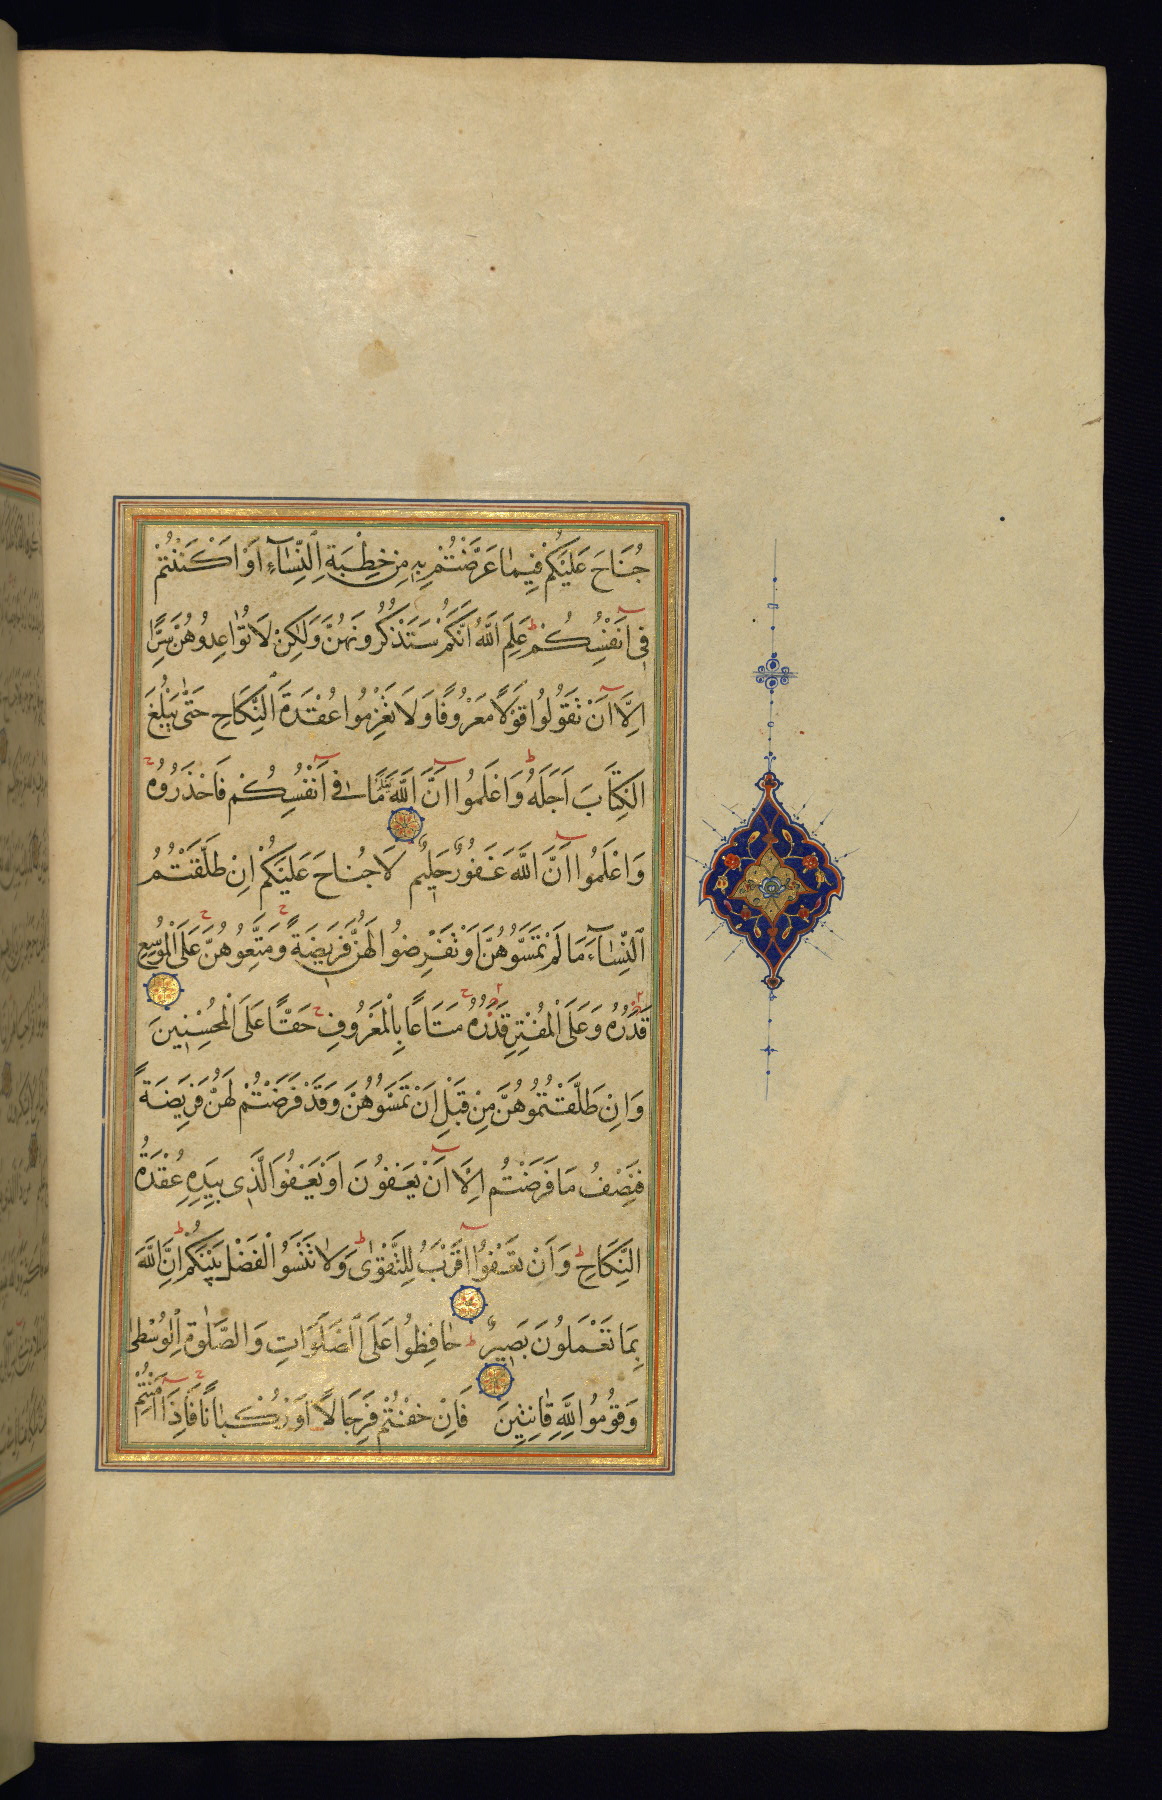 جُنَاحَ عَلَيْكُمْ فِيمَا عَرَّضْتُمْ بِهِ مِنْ خِطْبَةِ النِّسَاءِ أَوْ أَكْنَنْتُمْ
فِي أَنْفُسِكُمْ عَلِمَ اللَّهُ أَنَّكُمْ سَتَذْكُرُونَهُنَّ وَلَكِنْ لَا تُوَاعِدُوهُنَّ سِرًّا
إِلَّا أَنْ تَقُولُوا قَوْلًا مَعْرُوفًا وَلَا تَعْزِمُوا عُقْدَةَ النِّكَاحِ حَتَّى يَبْلُغَ
الْكِتَابَ أَجَلَهُ وَاعْلَمُوا أَنَّ اللَّهَ يَعْلَمُ مَا فِي أَنْفُسِكُمْ فَاحْذَرُوهُ
وَاعْلَمُوا أَنَّ اللَّهَ غَفُورٌ حَلِيمٌ لَا جُنَاحَ عَلَيْكُمْ إِنْ طَلَّقْتُمُ
النِّسَاءَ مَا لَمْ تَمَسُّوهُنَّ أَوْ تَفْرِضُوا لَهُنَّ فَرِيضَةً وَمَتِّعُوهُنَّ عَلَى الْمُوسِعِ
قَدَرُهُ وَعَلَى الْمُقْتِرِ قَدَرُهُ مَتَاعًا بِالْمَعْرُوفِ حَقًّا عَلَى الْمُحْسِنِينَ
وَإِنْ طَلَّقْتُمُوهُنَّ مِنْ قَبْلِ أَنْ تَمَسُّوهُنَّ وَقَدْ فَرَضْتُمْ لَهُنَّ فَرِيضَةً
فَنِصْفُ مَا فَرَضْتُمْ إِلَّا أَنْ يَعْفُونَ أَوْ يَعْفُوَ الَّذِي بِيَدِهِ عُقْدَةُ
النِّكَاحِ وَأَنْ تَعْفُوا أَقْرَبُ لِلتَّقْوَى وَلَا تَنْسَوُا الْفَضْلَ بَيْنَكُمْ إِنَّ اللَّهَ
بِمَا تَعْمَلُونَ بَصِيرٌ حَافِظُوا عَلَى الصَّلَوَاتِ وَالصَّلَوةِ الْوُسْطَى
وَقُومُوا لِلَّهِ قَانِتِينَ فَإِنْ خِفْتُمْ فَرِجَالًا أَوْ رُكْبَانًا فَإِذَا أَمِنْتُمْ